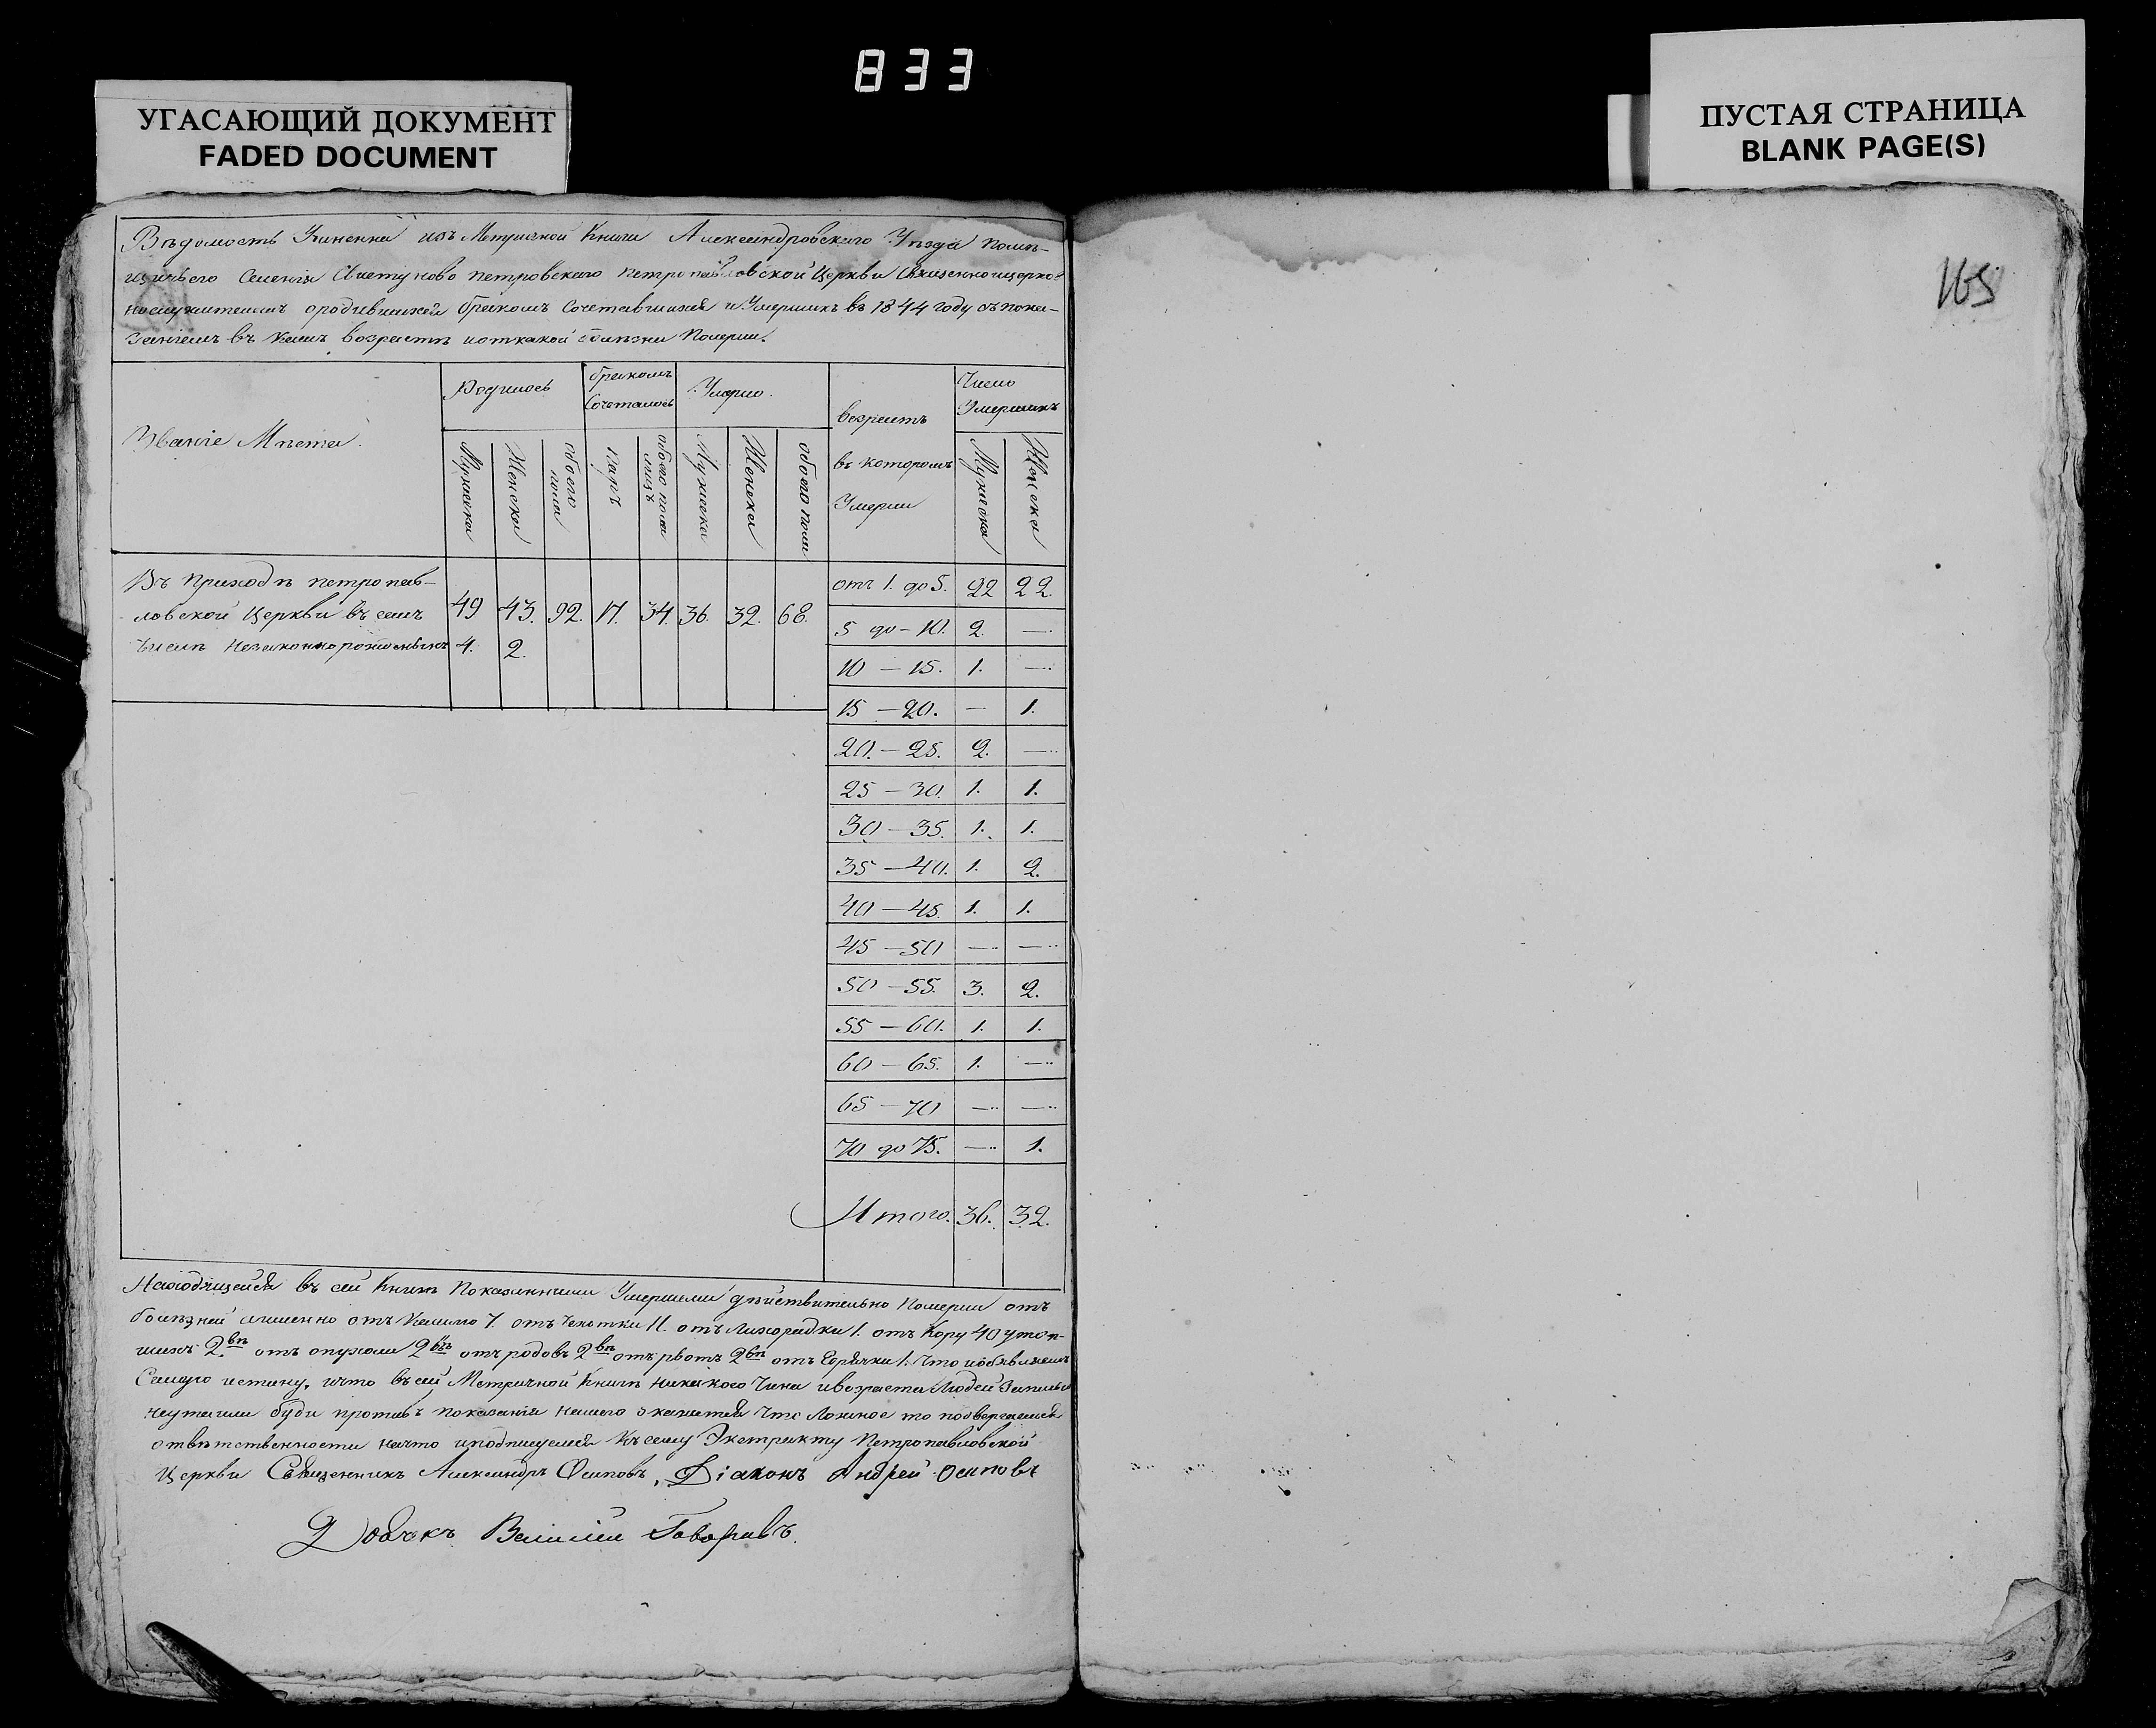 833
УГАСАЮЩИЙ ДОКУМЕНТ
FADED DOCUMENT
ПУСТАЯ СТРАНИЦА
BLANK PAGE(S)
165
Вѣдомость Учиненна изъ Метричной Книги Александровского Уѣзда помѣ-
щичьего Селенія Свистуново петровского петропавловской Церкви Священноцерко-
нослужителемъ ородившихся бракомъ Сочетавшихся и Умершихъ въ 1844 году съ пока-
заніемъ въ какихъ возрастѣ иоткакой болѣзни Померли.
Званіе Мѣста.
Родилось
бракомъ Сочеталось
Умерло.
возрастъ въ которомъ Умерли
Число Умершихъ
Мужеска
Женска
обоего пола
Паръ
обоего пола лицъ
Мужеска
Женска
обоего пола
Мужеска
Женска
Въ приходѣ петропав-
ловской Церкви въ семъ 49 43. 92. 17. 34. 36. 32. 68.
Числѣ незаконнорожденныхъ 4. 2.
отъ 1. до 5. 22 22.
5 до - 10. 2. —
10 — 15. 1. —
15 — 20. — 1.
20. — 25. 2. —
25 — 30. 1. 1.
30 — 35. 1. 1.
35 — 40. 1. 2.
40 — 45. 1. 1.
45 — 50 — —
50 — 55. 3. 2.
55 — 60. 1. 1.
60 — 65. 1. —
65 — 70 — —
70 до 75. — 1.
Итого. 36. 32.
Находящейся въ сей Книгѣ Показанными Умершими дѣйствительно Померли отъ
болѣзней аименно отъ Кашлю 7. отъ Чехотки 11. отъ Лихорадки 1. отъ Кору 40 утоп-
шихъ 2. отъ опухоли 2 отъ родовъ 2 отъ рвотъ 2 отъ Горячки 1. Что иобявляемъ
Самую истину, ичто въсей Метричной Книги никакого Чина ивозраста Людей
неутаили буди противъ показанія нашего окажется что Ложное то подвергаемся
отвѣтственности начто иподпишуемся Къ сему Экстракту Петропавловской
Церкви Священникъ Александръ Осиповъ, Діаконъ Андрей Осиповъ
Дьячекъ Василій Говоровъ.